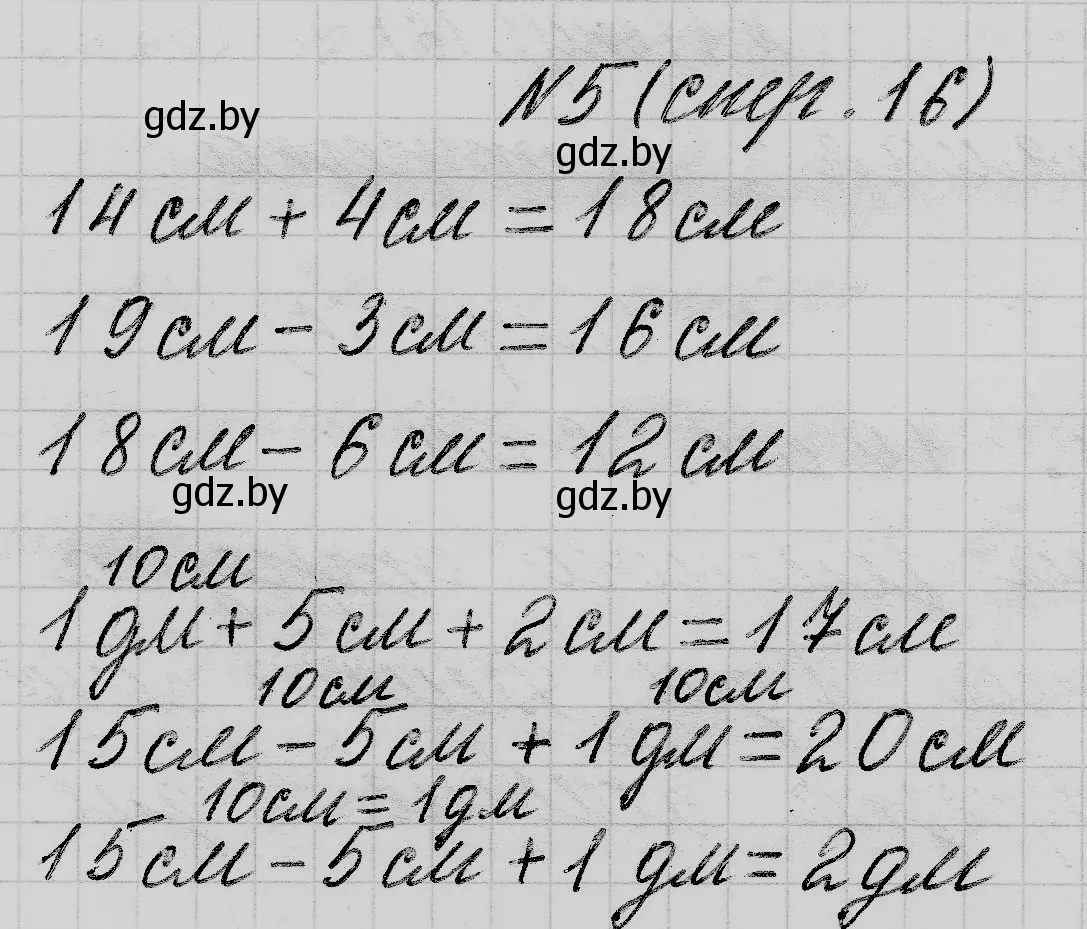 N 5 (стр. 16)
gdz.by
gdz.by
14 см + 4 см = 18 см
19 см - 3 см = 16 см
18 см - 6 см = 12 см
gdz.by gdz.by
10 см
1 дм + 5 см + 2 см = 17 см
10 см 10 см
15 см - 5 см + 1 дм = 20 см
10 см = 1 дм
15 см - 5 см + 1 дм = 2 дм